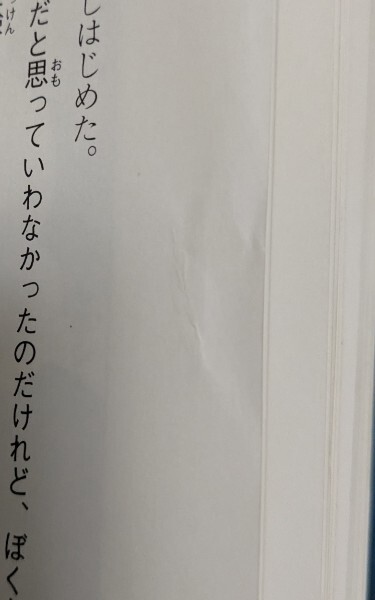 しはじめた。
だと思っていわなかったのだけれど、ぼく